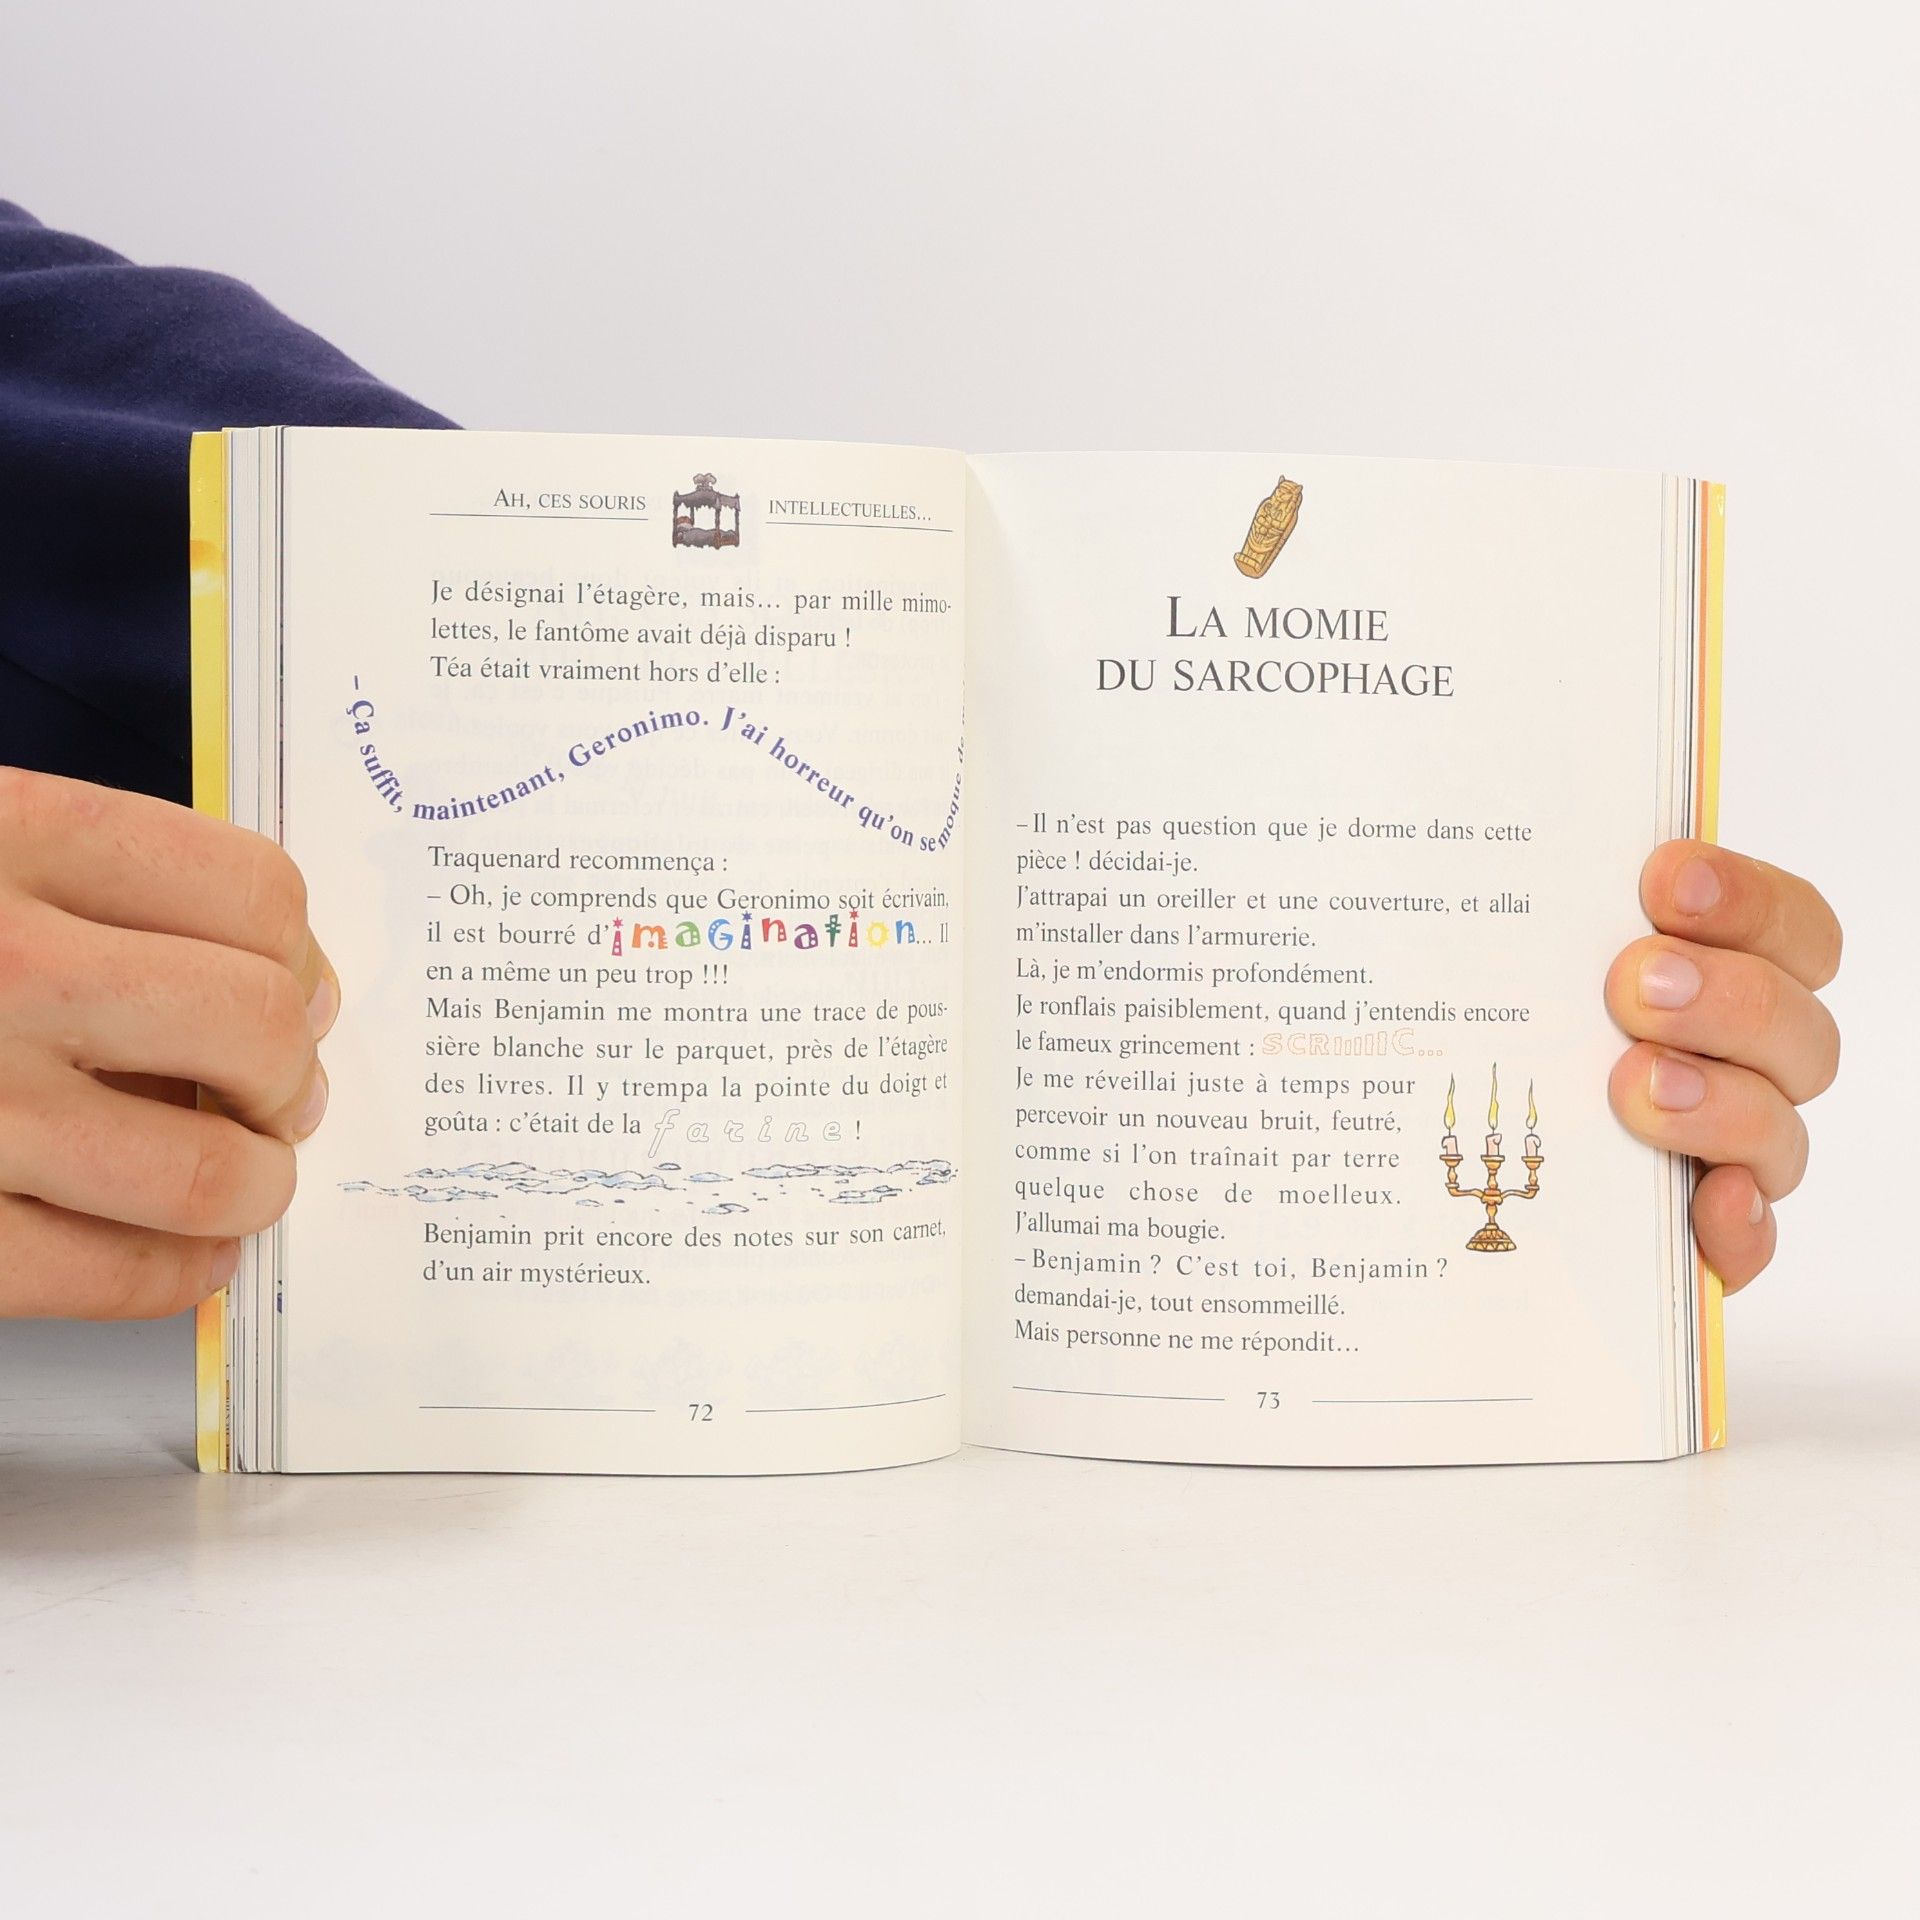 AH, CES SOURIS INTELLECTUELLES...
Je désignai l'étagère, mais... par mille mimo-
lettes, le fantôme avait déjà disparu !
Téa était vraiment hors d'elle :
– Ça suffit, maintenant, Geronimo. J'ai horreur qu'on se moque de
Traquenard recommença :
– Oh, je comprends que Geronimo soit écrivain,
il est bourré d'imagination... Il
en a même un peu trop !!!
Mais Benjamin me montra une trace de pous-
sière blanche sur le parquet, près de l'étagère
des livres. Il y trempa la pointe du doigt et
goûta : c'était de la farine !
Benjamin prit encore des notes sur son carnet,
d'un air mystérieux.
72
LA MOMIE
DU SARCOPHAGE
– Il n'est pas question que je dorme dans cette
pièce ! décidai-je.
J'attrapai un oreiller et une couverture, et allai
m'installer dans l'armurerie.
Là, je m'endormis profondément.
Je ronflais paisiblement, quand j'entendis encore
le fameux grincement : SCRIIIIIC...
Je me réveillai juste à temps pour
percevoir un nouveau bruit, feutré,
comme si l'on traînait par terre
quelque chose de moelleux.
J'allumai ma bougie.
– Benjamin ? C'est toi, Benjamin ?
demandai-je, tout ensommeillé.
Mais personne ne me répondit...
73